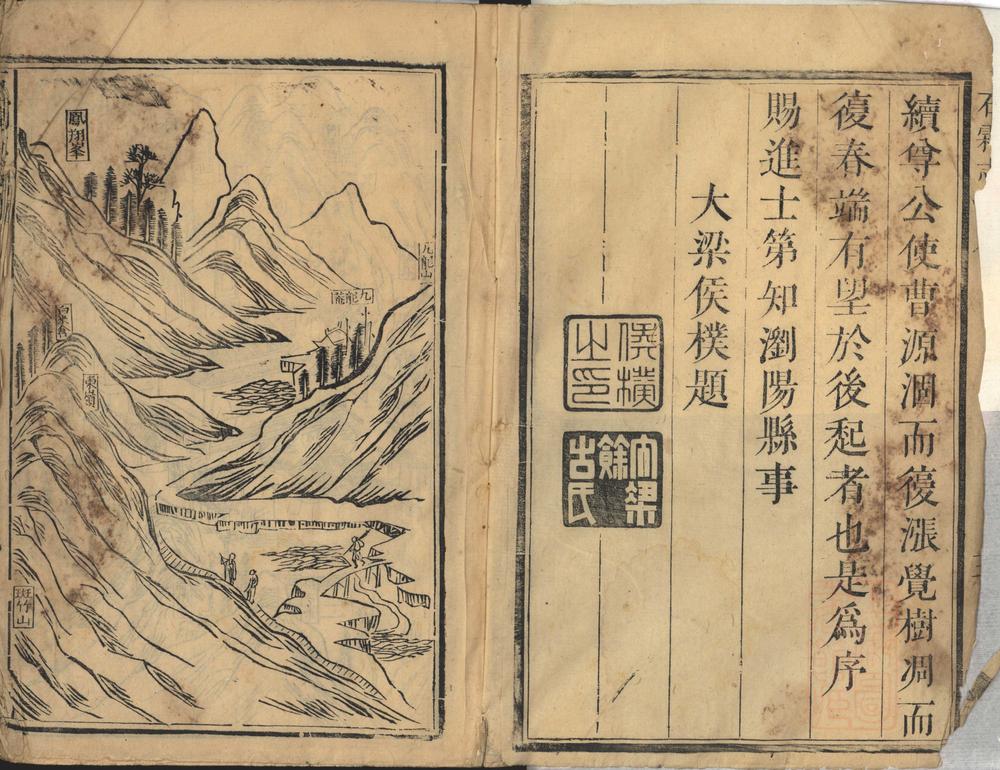 續尊公使曹源涸而復漲覺樹凋而
復春端有望於後起者也是爲序
賜進士第知瀏陽縣事
大梁侯樸題
侯樸
之印
大梁
餘
古氏
石霜志
九龍山
九龍菴
鳳翔峯
東嶺
斑竹山